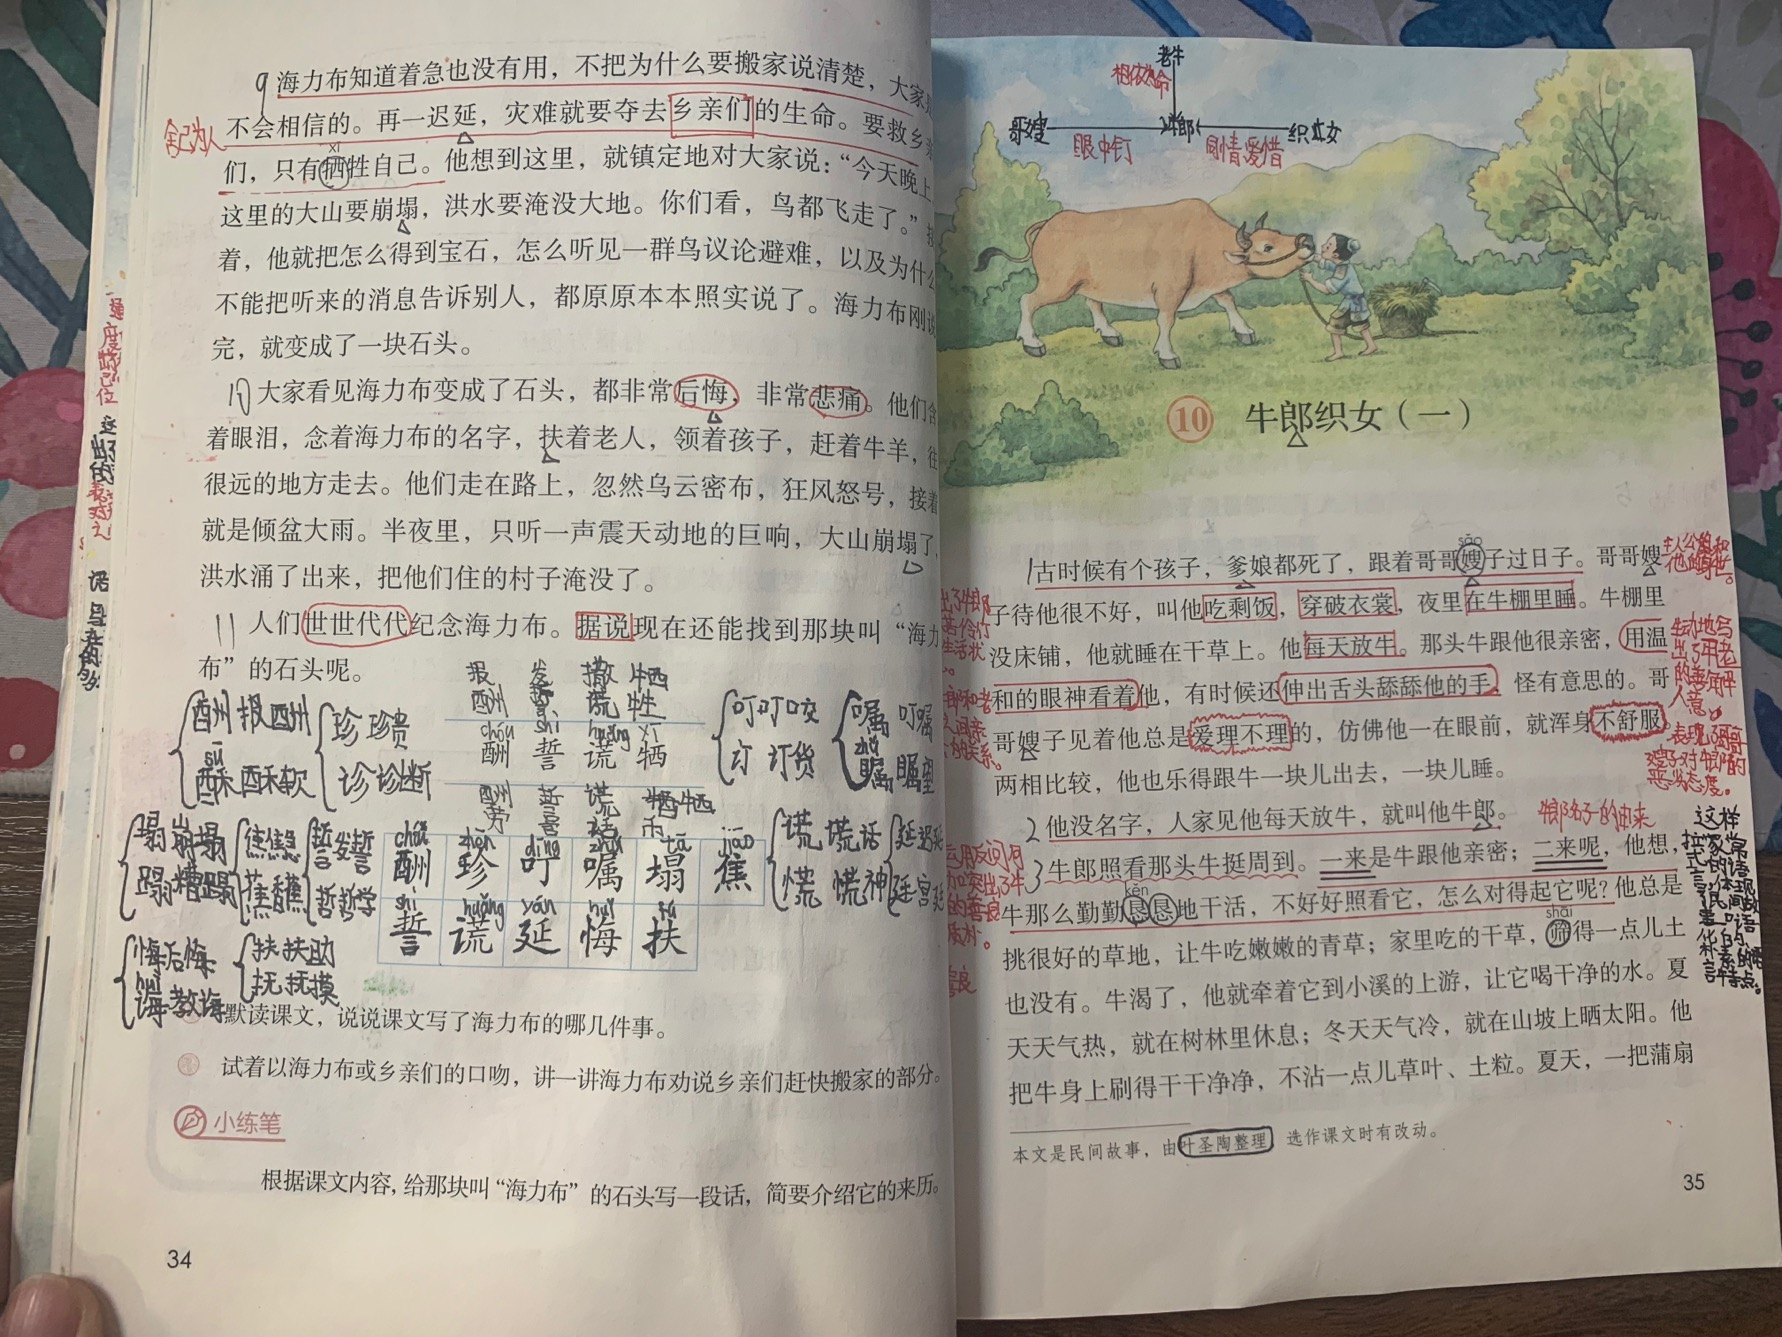 9 海力布知道着急也没有用，不把为什么要搬家说清楚，大家
不会相信的。再一迟延，灾难就要夺去乡亲们的生命。要救乡
舍己为人
xī
们，只有牺牲自己。他想到这里，就镇定地对大家说：“今天晚上
这里的大山要崩塌，洪水要淹没大地。你们看，鸟都飞走了。”
着，他就把怎么得到宝石，怎么听见一群鸟议论避难，以及为什么
不能把听来的消息告诉别人，都原原本本照实说了。海力布刚
完，就变成了一块石头。
10 大家看见海力布变成了石头，都非常后悔，非常悲痛。他们含
着眼泪，念着海力布的名字，扶着老人，领着孩子，赶着牛羊，往
很远的地方走去。他们走在路上，忽然乌云密布，狂风怒号，接着
就是倾盆大雨。半夜里，只听一声震天动地的巨响，大山崩塌了，
洪水涌了出来，把他们住的村子淹没了。
11 人们世世代代纪念海力布。据说现在还能找到那块叫“海力
布”的石头呢。
报 发 撒 牺
酬 誓 谎 牲
酬 报酬
sū
酥 酥软
珍 珍贵
诊 诊断
chóu shì huǎng xī
酬 誓 谎 牺
酬 誓 谎
劳 言 话
叮 叮咬
订 订货
嘱 叮嘱
瞩 瞩望
塌 崩塌
蹋 糟蹋
焦 焦急
蕉
誓 发誓
哲 哲学
chóu zhēn dīng zhǔ tā jiāo
酬 珍 叮 嘱 塌 焦
shì huǎng yán huǐ fú
誓 谎 延 悔 扶
谎 谎话
慌 慌神
延 迟延
廷 宫廷
悔 后悔
huì
诲 教诲
扶 扶助
抚 抚摸
默读课文，说说课文写了海力布的哪几件事。
试着以海力布或乡亲们的口吻，讲一讲海力布劝说乡亲们赶快搬家的部分。
小练笔
根据课文内容，给那块叫“海力布”的石头写一段话，简要介绍它的来历。
34
老牛
相依为命
哥嫂 牛郎 织女
眼中钉 同情爱惜
10 牛郎织女（一）
sǎo
1 古时候有个孩子，爹娘都死了，跟着哥哥嫂子过日子。哥哥嫂
子待他很不好，叫他吃剩饭，穿破衣裳，夜里在牛棚里睡。牛棚里
没床铺，他就睡在干草上。他每天放牛。那头牛跟他很亲密，用温
和的眼神看着他，有时候还伸出舌头舔舔他的手，怪有意思的。哥
哥嫂子见着他总是爱理不理的，仿佛他一在眼前，就浑身不舒服。
两相比较，他也乐得跟牛一块儿出去，一块儿睡。
2 他没名字，人家见他每天放牛，就叫他牛郎。
牛郎名子的由来
3 牛郎照看那头牛挺周到。一来是牛跟他亲密；二来呢，他想，
kěn
牛那么勤勤恳恳地干活，不好好照看它，怎么对得起它呢？他总是
shāi
挑很好的草地，让牛吃嫩嫩的青草；家里吃的干草，筛得一点儿土
也没有。牛渴了，他就牵着它到小溪的上游，让它喝干净的水。夏
天天气热，就在树林里休息；冬天天气冷，就在山坡上晒太阳。他
把牛身上刷得干干净净，不沾一点儿草叶、土粒。夏天，一把蒲扇
本文是民间故事，由叶圣陶整理，选作课文时有改动。
35